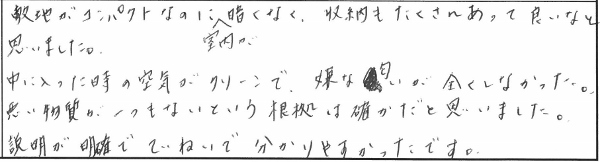 敷地がコンパクトなのに室内が暗くなく、収納もたくさんあって良いなと
思いました。
中に入った時の空気がクリーンで、嫌な匂いが全くしなかった。
悪い物質が一つもないという根拠は確かだと思いました。
説明が明確でていねいで分かりやすかったです。